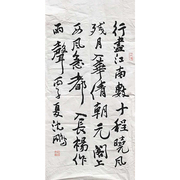 行盡江南數十程曉风
残月入華清朝元閣上
西风急都入長楊作
雨聲 丙子夏沈鹏